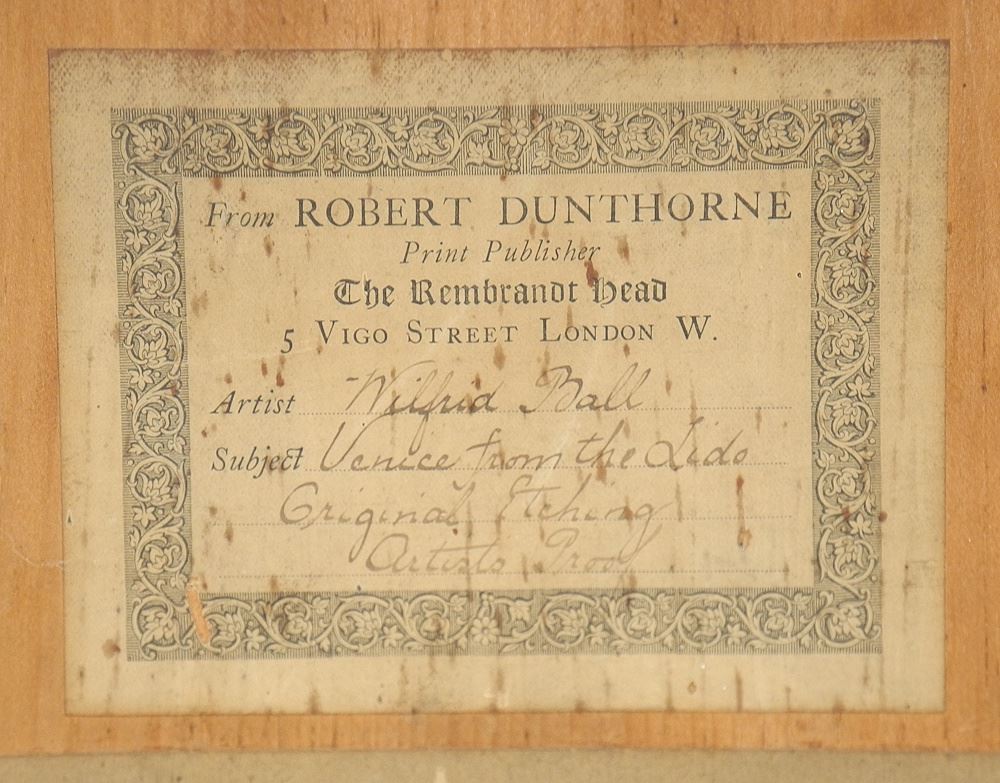 From ROBERT DUNTHORNE
Print Publisher
The Rembrandt Head
5 VIGO STREET LONDON W.
Artist Wilfrid Ball
Subject Venice from the Lido
Original Etching
Artists Proof